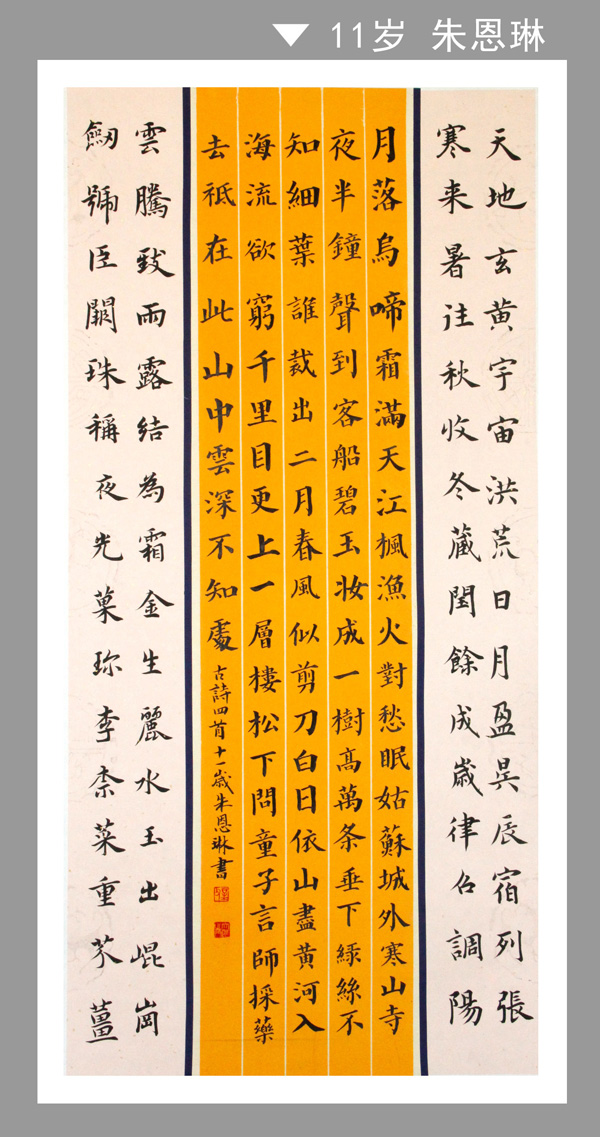 ▼ 11岁 朱恩琳
天地玄黄宇宙洪荒日月盈昃辰宿列張
寒来暑往秋收冬藏閏餘成歲律召調陽
月落烏啼霜滿天江楓漁火對愁眠姑蘇城外寒山寺
夜半鐘聲到客船碧玉妆成一樹髙萬条垂下緑絲不
知細葉誰裁出二月春風似剪刀白日依山盡黄河入
海流欲窮千里目更上一層樓松下問童子言師採藥
去祗在此山中雲深不知處古詩四首十一歲朱恩琳書
雲騰致雨露結為霜金生麗水玉出崐崗
劒號臣闕珠稱夜光菓珎李柰菜重芥薑